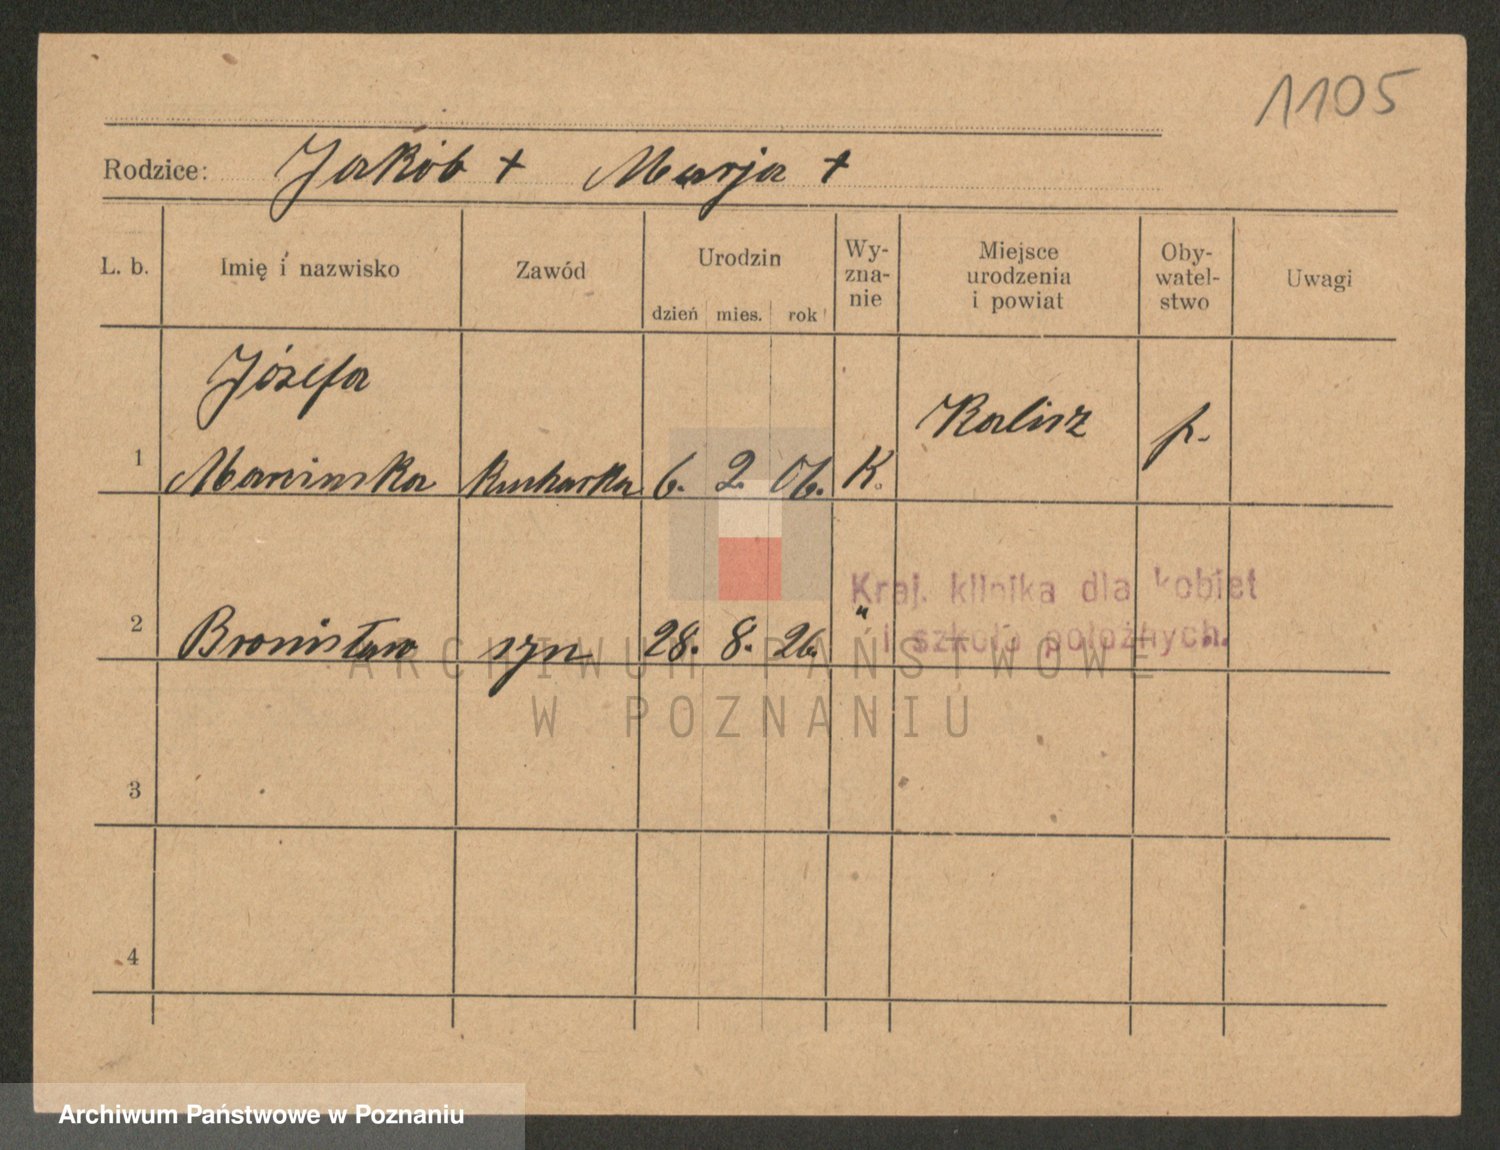 1105
Rodzice: Jakób + Marja +
L. b. Imię i nazwisko Zawód Urodzin dzień mies. rok Wy-zna-nie Miejsce urodzenia i powiat Oby-watel-stwo Uwagi
Józefa
1 kucharka 6. 2. 06. K. Kalisz p.
Kraj. klinika dla kobiet
2 Bronisław syn 28. 8. 26. " i szkoła położnych.
ARCHIWUM PAŃSTWOWE
W POZNANIU
3
4
Archiwum Państwowe w Poznaniu